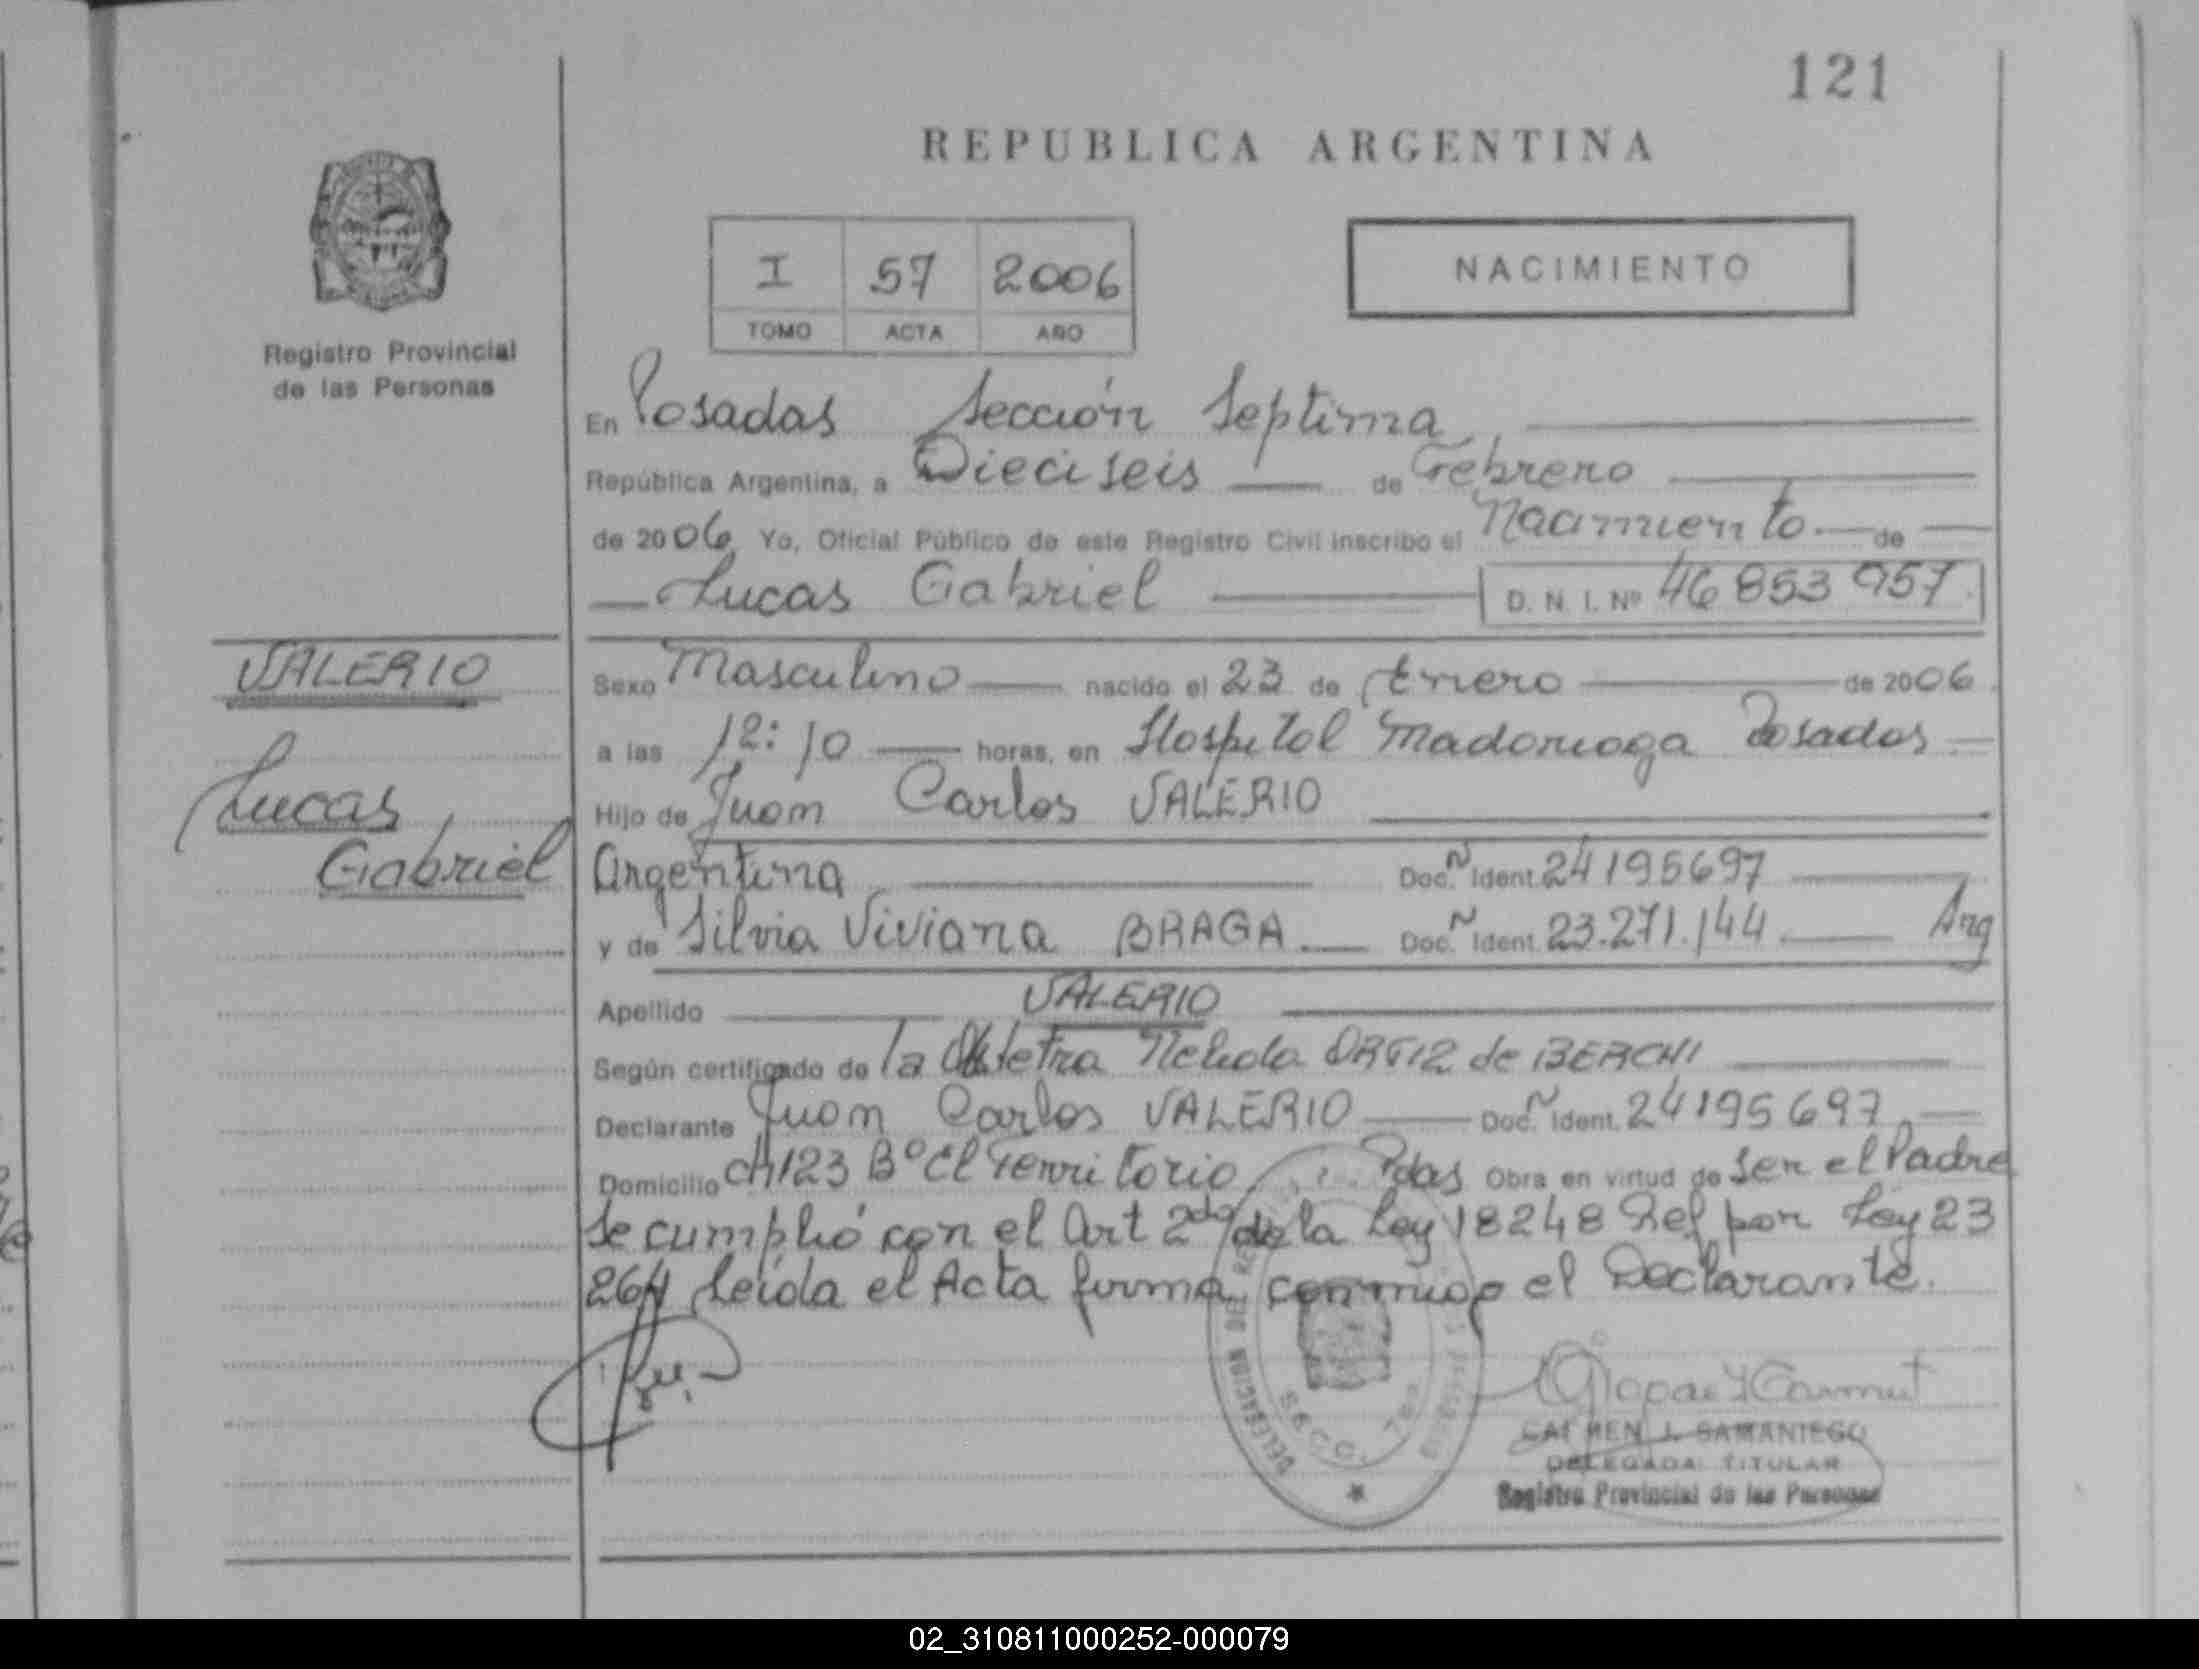 121
REPUBLICA ARGENTINA
I 57 2006
TOMO ACTA AÑO
NACIMIENTO
Registro Provincial
de las Personas
En Posadas Sección Septima
República Argentina, a Dieciseis de Febrero
de 2006 Yo, Oficial Público de este Registro Civil inscribo el Nacimiento de
Lucas Gabriel D. N. I. Nº 46 853 957
VALERIO
Lucas
Gabriel
Sexo Masculino nacido el 23 de Enero de 2006
a las 12:10 horas, en Hospital Madariaga Posadas
Hijo de Juan Carlos VALERIO
Argentina Doc. Ident. 24195697
y de Silvia Viviana BRAGA Doc. Ident. 23.271.144 Arg
Apellido VALERIO
Según certificado de la Obstetra Nelida ORTIZ de BERCHI
Declarante Juan Carlos VALERIO Doc. Ident. 24195697
Domicilio ch 123 Bº El Territorio Pdas Obra en virtud de ser el Padre
Se cumplió con el Art 2do de la Ley 18248 Ref por Ley 23
264 Leída el Acta firma conmigo el Declarante.
DELEGACION DEL
SECC. 7ma
CARMEN J. SAMANIEGO
DELEGADA TITULAR
Registro Provincial de las Personas
02_310811000252-000079